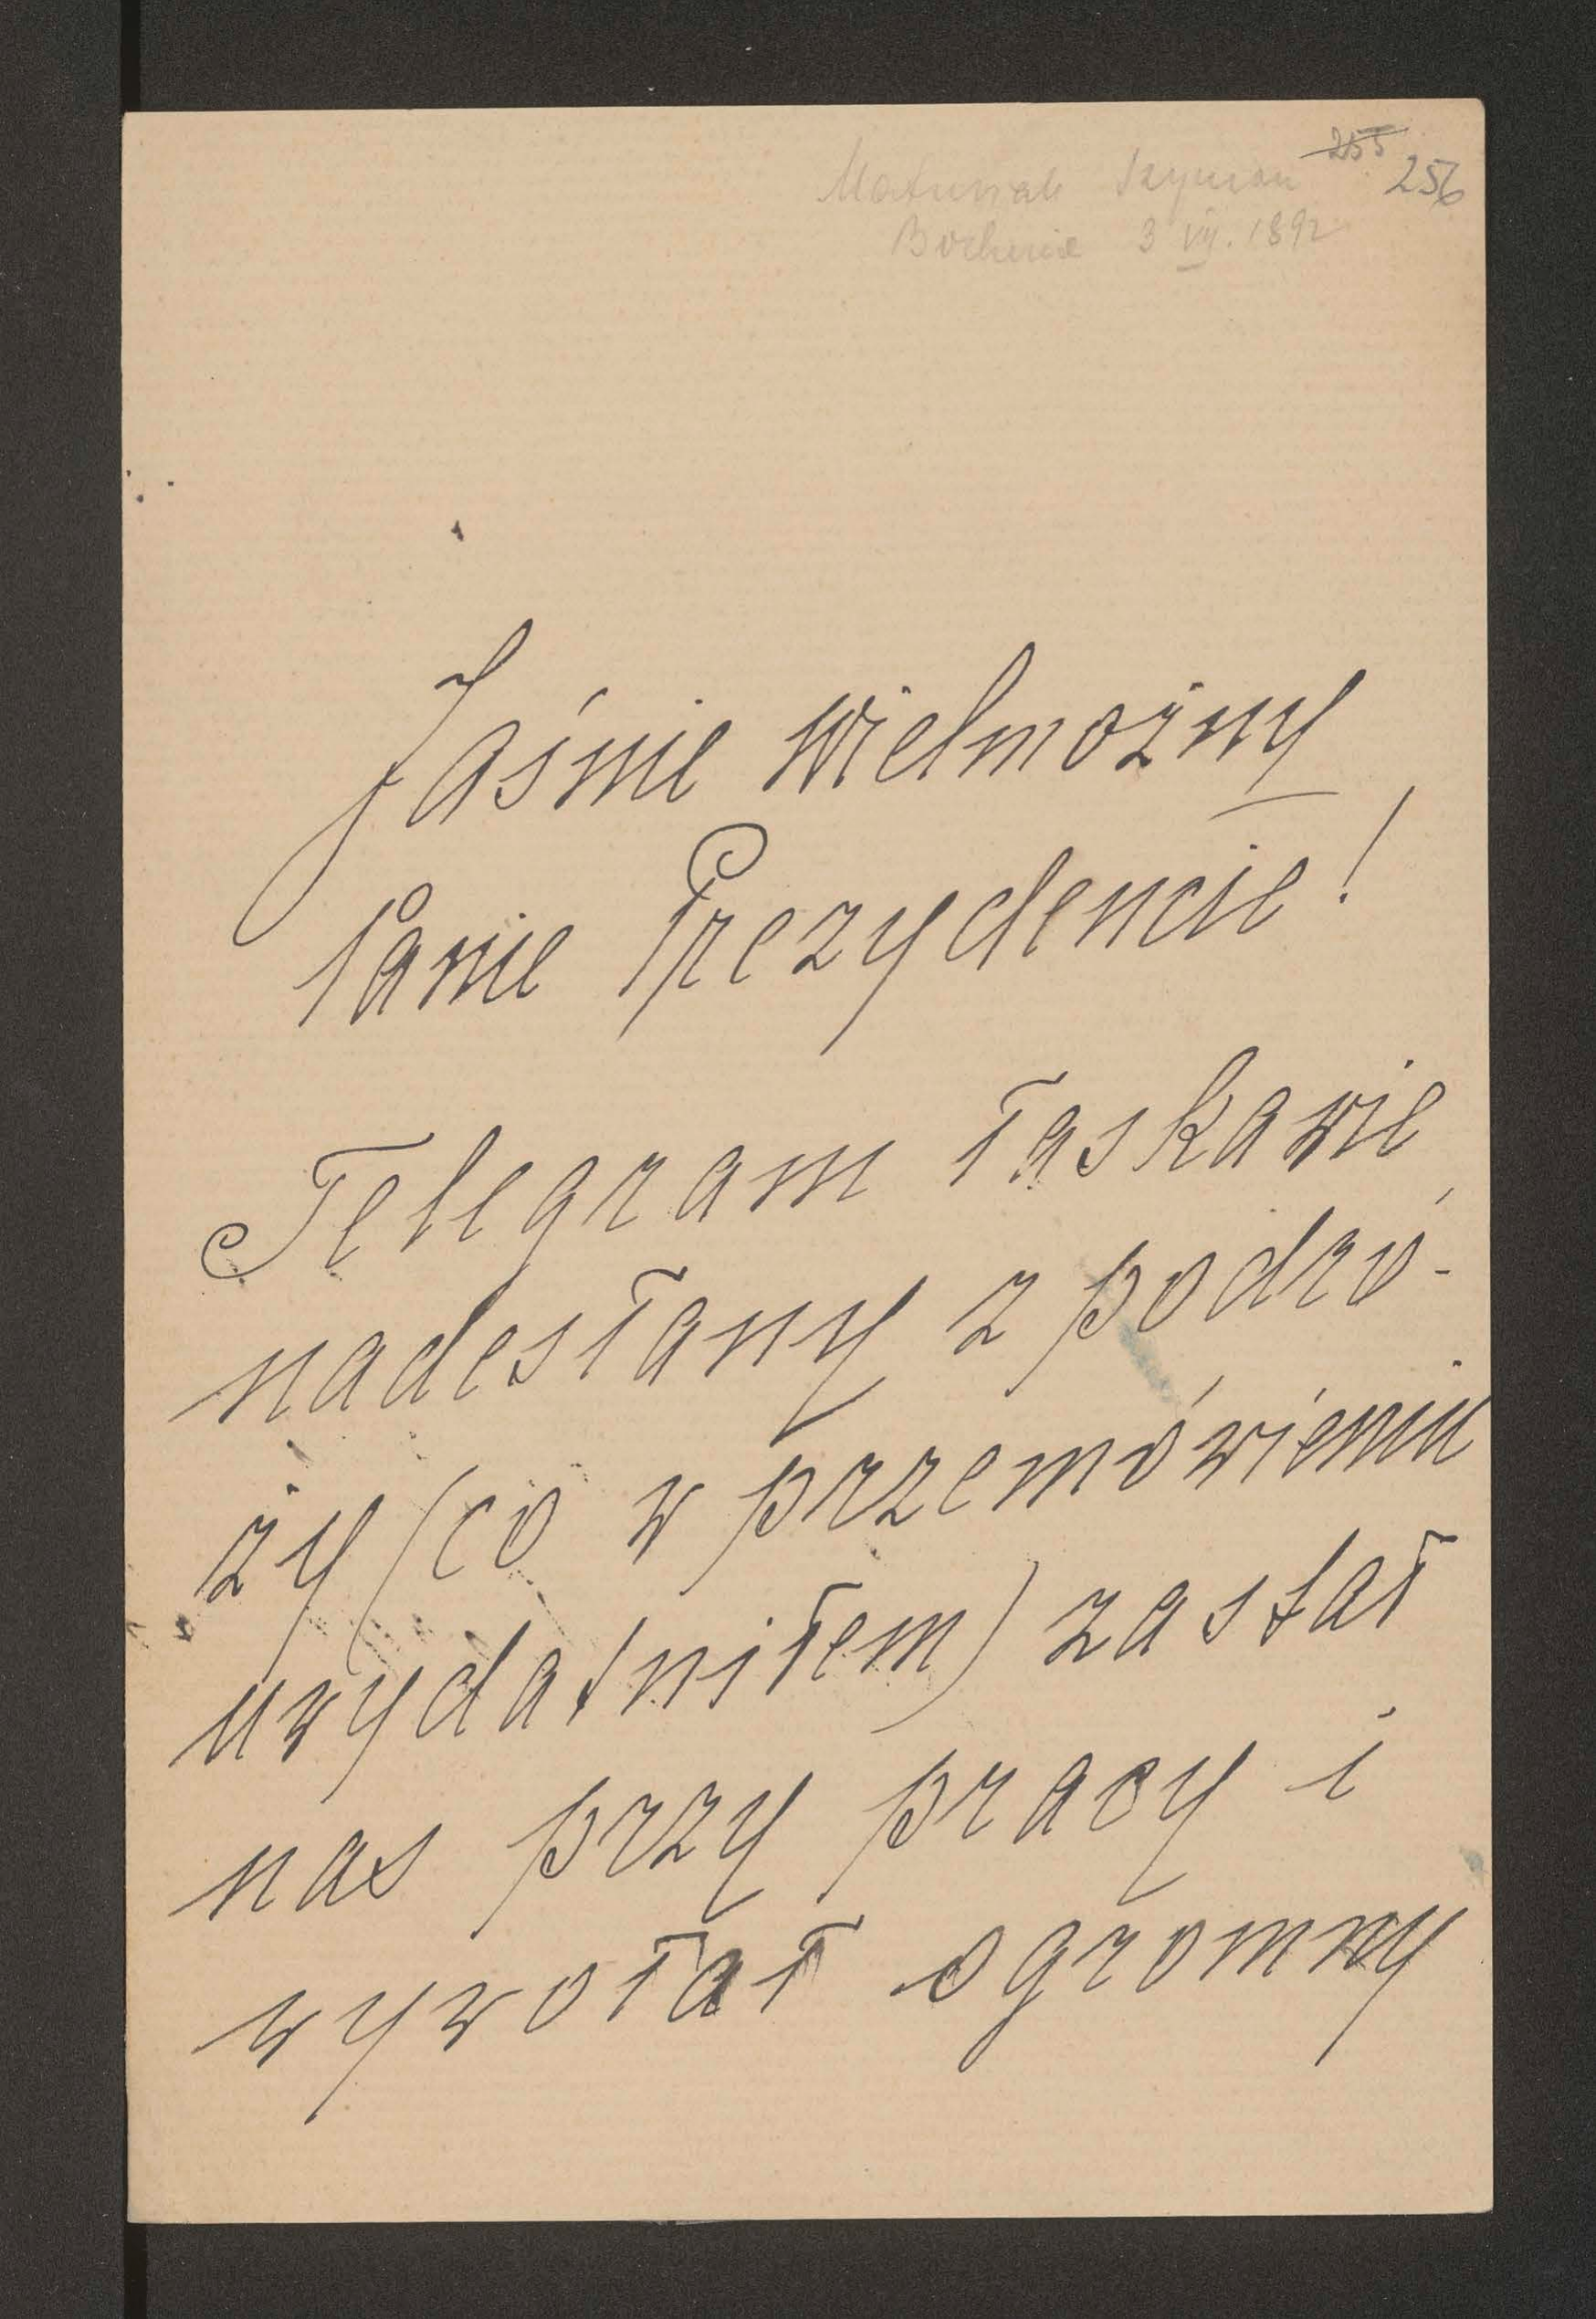 255 256
Matusiak Szymon
Bochnia 3 VII. 1892
Jaśnie Wielmożny
Panie Prezydencie!
Telegram łaskawie
nadesłany z podró-
ży (co w przemówieniu
uwydatniłem) zastał
nas przy pracy i
wywołał ogromny